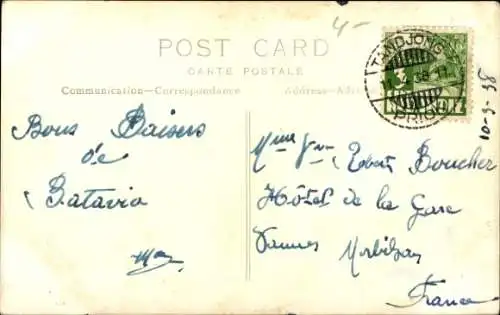 4-
POST CARD
CARTE POSTALE
Communication—Correspondance
TANDJONG
38.11
PRIOK
10-6-38
Bons Baisers
de
Batavia
Mme Robert Boucher
Hôtel de la Gare
Vannes Morbihan
France